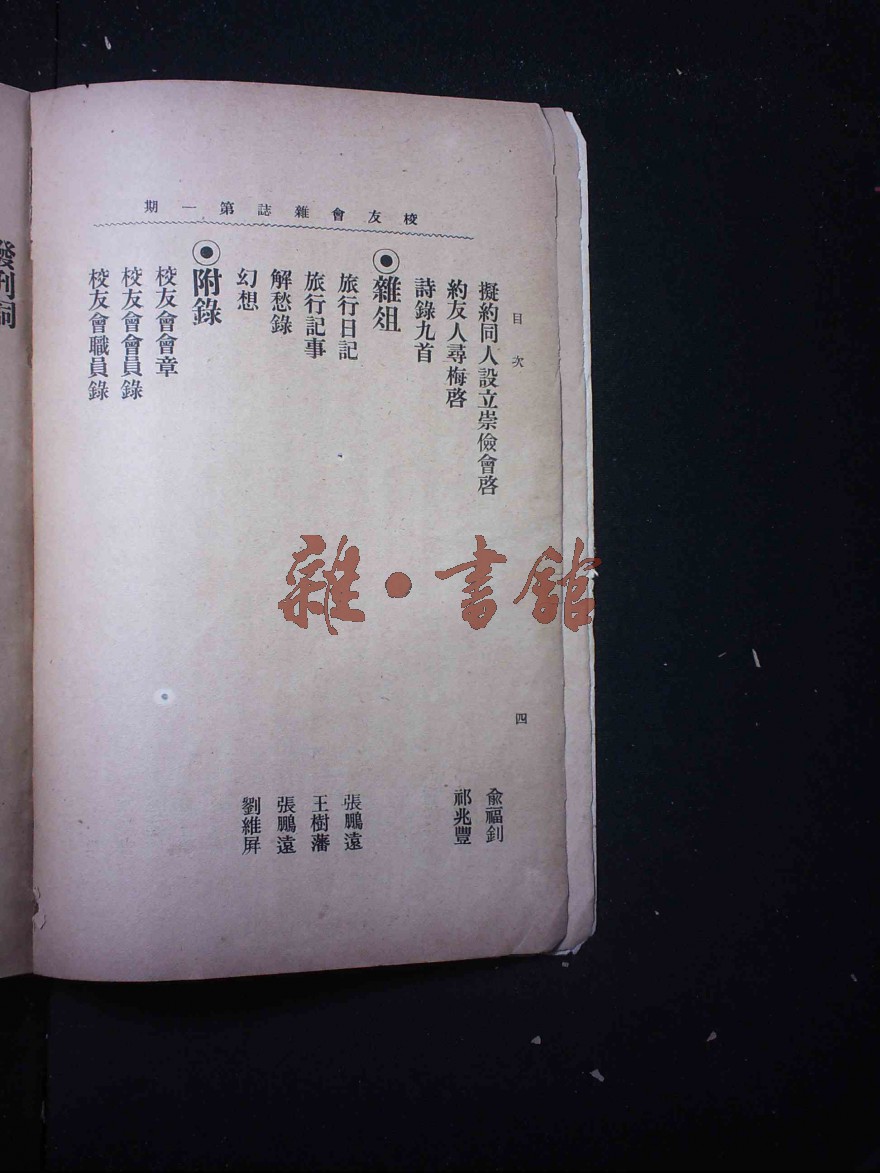 校友會雜誌第一期
目次
四
擬約同人設立崇儉會啓 兪福釗
約友人尋梅啓 祁兆豐
詩錄九首
雜俎
旅行日記 張鵬遠
旅行記事 王樹藩
解愁錄 張鵬遠
幻想 劉維屛
附錄
校友會會章
校友會會員錄
校友會職員錄
發刊詞
雜·書館